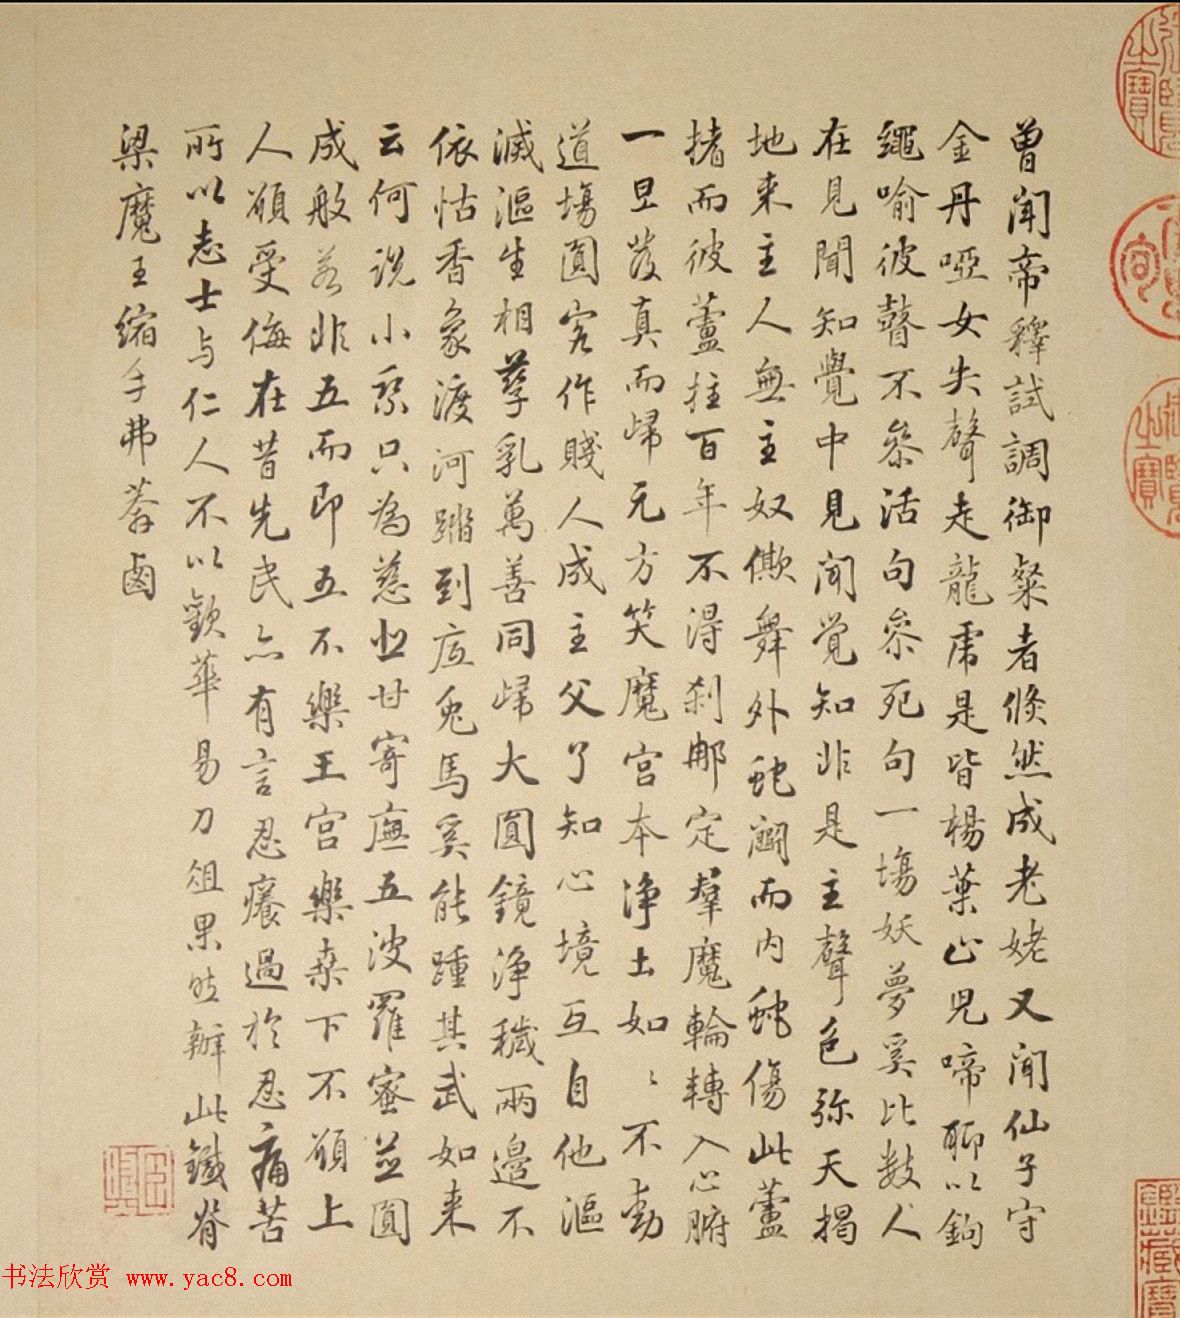 曾闻帝释试调御粲者倏然成老姥又闻仙子守
金丹哑女失声走龍虎是皆楊葉止児啼聊以鉤
繩喻彼瞽不叅活句叅死句一塲妖夢奚比数人
在見聞知覺中見闻覚知非是主聲色弥天揭
地来主人無主奴僛舞外蛇鬭而内蛇傷此蘆
揸而彼蘆拄百年不得刹那定羣魔輪轉入心腑
一旦发真而歸元方笑魔宫本浄土如〻不動
道塲圓客作賤人成主父了知心境互自他漚
滅漚生相孳乳萬善同歸大圓鏡淨穢兩邉不
依怙香象渡河蹋到底兎馬奚能踵其武如来
云何说小乘只為慈悲甘寄廡五波羅蜜並圓
成般若非五而即五不樂王宫樂桑下不願上
人願受侮在昔先民亦有言忍癢過於忍痛苦
所以志士与仁人不以歡華易刀俎果能辦此鐵脊
梁魔王缩手弗莽鹵
鑑藏寶
书法欣赏 www.yac8.com